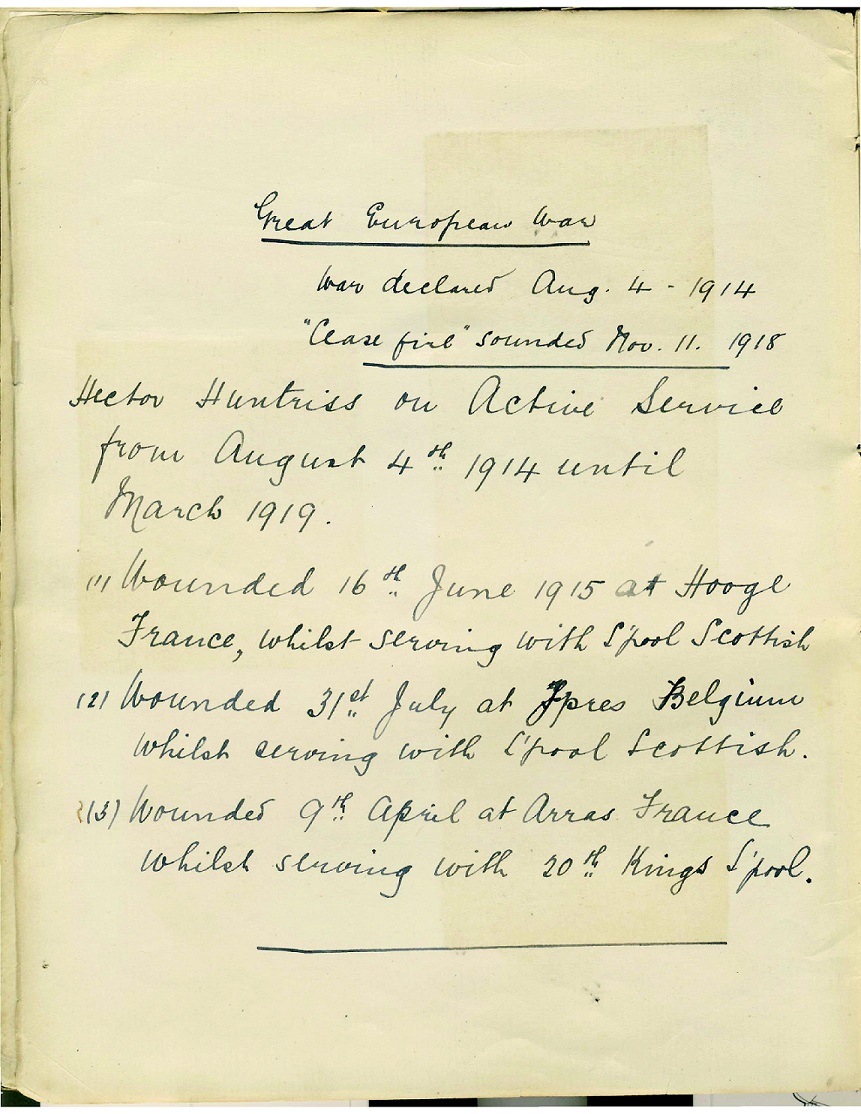 Great European War
War declared Aug. 4 - 1914
"Cease fire" sounded Nov. 11. 1918
Hector Huntriss on Active Service
from August 4th 1914 until
March 1919.
(1) Wounded 16th June 1915 at Hooge
France, whilst serving with L'pool Scottish
(2) Wounded 31st July at Ypres Belgium
whilst serving with L'pool Scottish.
(3) Wounded 9th April at Arras France
whilst serving with 20th Kings L'pool.